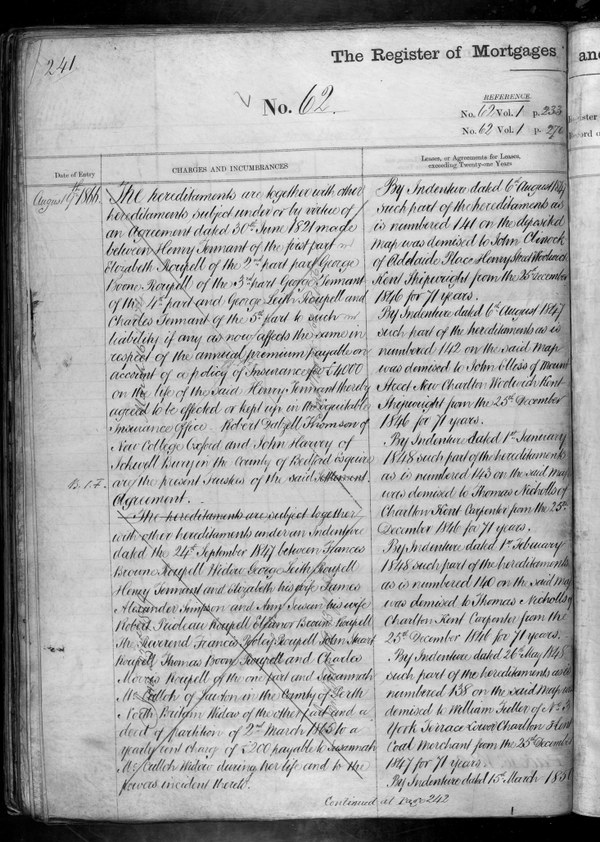 241
The Register of Mortgages
and
No. 62
REFERENCE.
No. 62 Vol. 1 p. 233
No. 62 Vol. 1 p. 276
Date of Entry
CHARGES AND INCUMBRANCES
Leases, or Agreements for Leases,
exceeding Twenty-one Years
August 9th 1866.
The hereditaments are together with other
hereditaments subject under or by virtue of
an Agreement dated 30th June 1821 made
between Henry Tennant of the first part
Elizabeth Roupell of the 2nd part George
Boone Roupell of the 3rd part George Tennant
of the 4th part and George Leith Roupell and
Charles Tennant of the 5th part to such
liability if any as now affects the same in
respect of the annual premium payable on
account of a policy of Insurance for £4000
on the life of the said Henry Tennant thereby
agreed to be effected or kept up in the Equitable
Insurance Office. Robert Dalzell Thomson of
New College Oxford and John Harvey of
Ickwell Bury in the County of Bedford esquires
are the present Trustees of the said Settlement.
Agreement.
The hereditaments are subject together
with other hereditaments under an Indenture
dated the 24th September 1847 between Frances
Boone Roupell Widow George Leith Roupell
Henry Tennant and Elizabeth his wife James
Alexander Simpson and Ann Susan his wife
Robert Prioleau Roupell Eleanor Boone Roupell
The Reverend Francis Roupell John Stuart
Roupell Thomas Boone Roupell and Charles
Morris Roupell of the one part and Susannah
McCulloh of in the County of Perth
North Britain Widow of the other part and a
deed of partition of 2nd March 1865 to a
yearly rent charge of £200 payable to Susannah
McCulloh Widow during her life and to the
powers incident thereto.
By Indenture dated 6th August 1847
such part of the hereditaments as
is numbered 141 on the deposited
map was demised to John
of Adelaide Place Henry Street Woolwich
Kent Shipwright from the 25th December
1846 for 71 years.
By Indenture dated 6th August 1847
such part of the hereditaments as is
numbered 142 on the said Map
was demised to John of Mount
Street New Charlton Woolwich Kent
Shipwright from the 25th December
1846 for 71 years.
By Indenture dated 1st January
1848 such part of the hereditaments
as is numbered 143 on the said Map
was demised to Thomas Nicholls of
Charlton Kent Carpenter from the 25th
December 1846 for 71 years.
By Indenture dated 1st February
1848 such part of the hereditaments
as is numbered 140 on the said Map
was demised to Thomas Nicholls of
Charlton Kent Carpenter from the
25th December 1846 for 71 years.
By Indenture dated 26th May 1848
such part of the hereditaments as is
numbered 138 on the said Map was
demised to William Tuller of No.
York Terrace Lower Charlton Kent
Coal Merchant from the 25th December
1847 for 71 years.
By Indenture dated 15th March
Continued at page 242